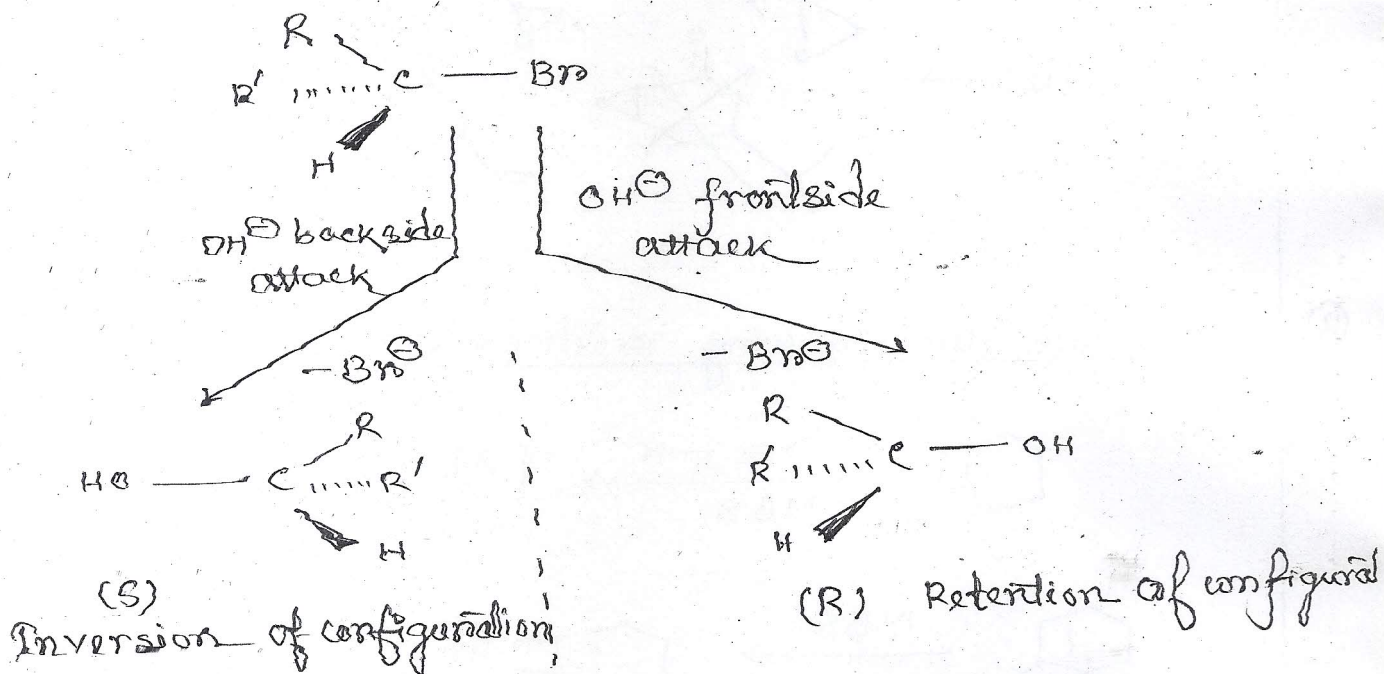 R
R' C — Br
H
OH⊖ backside
attack
OH⊖ frontside
attack
– Br⊖
– Br⊖
R
HO — C R'
H
R
R' C — OH
H
(S)
Inversion of configuration
(R) Retention of configurat